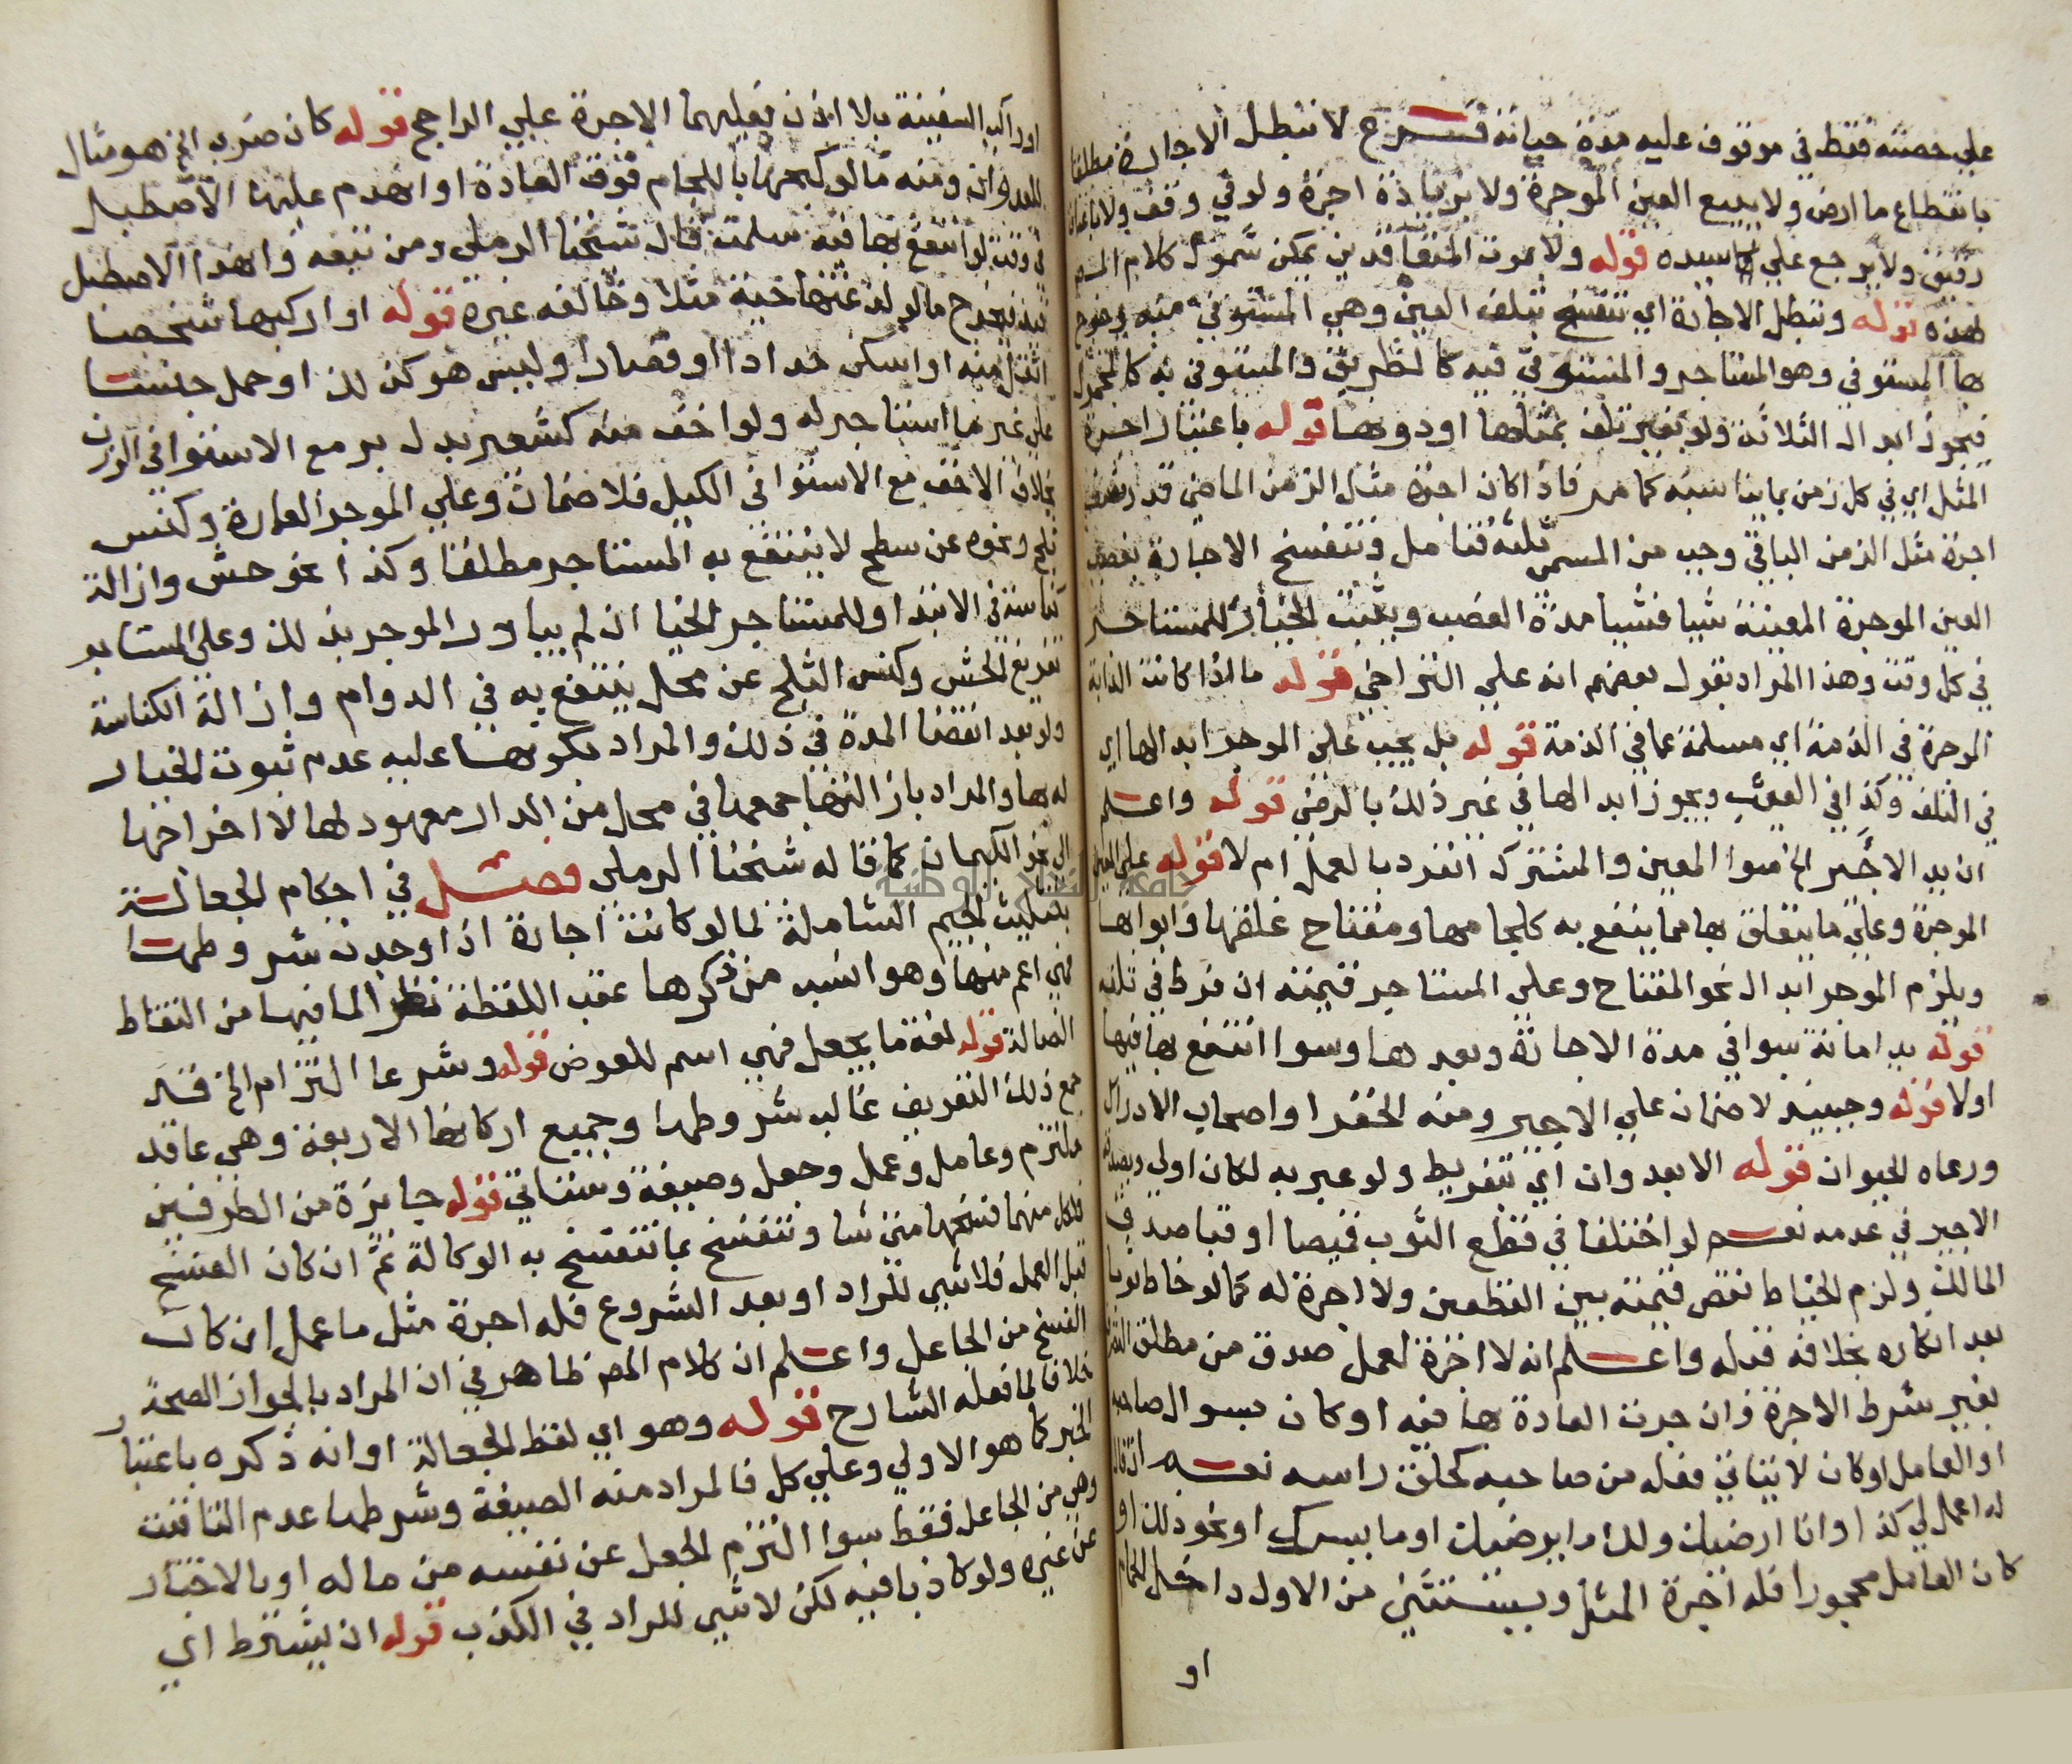 علي حصته فقط في موقوف عليه مدة حياته فــرع لا تبطل الاجارة مطلقا
بانقطاع ما ارض ولا ببيع العين الموجرة ولا بزيادة اجرة ولو في وقف ولا باعتاق
رقيق ولا يرجع علي سيده قوله ولا بموت المتعاقدين يمكن شمول كلام المص
لهذه قوله وتبطل الاجارة اي تنفسخ بتلف العين وهي المستوفي منه وخرج
بها المستوفي وهو المستاجر والمستوفي فيه كالطريق والمستوفي به كالمحمول
فيجوز ابدال الثلاثة ولو بغير تلف بمثلها او دونها قوله باعتبار اجرة
المثل اي في كل زمن بما يناسبه كما مر فاذا كان اجرة مثل الزمن الماضي قدر ضعف
اجرة مثل الزمن الباقي وجب من المسمي ثلثه فتامل وتنفسخ الاجارة بغصب
العين الموجرة المعينة شيا فشيا مدة الغصب ويثبت الخيار للمستاجر
في كل وقت وهذا المراد بقول بعضهم انه علي التراخي قوله ما اذا كانت الدابة
الموجرة في الذمة اي مسلمة عما في الذمة قوله بل يجب علي الموجر ابدالها اي
في التلف وكذا في العيب ويجوز ابدالها في غير ذلك بالرضي قوله واعلم
ان يد الاجير الخ سوا المعين والمشترك انفرد بالعمل ام لا قوله علي العين
الموجرة وعلي ما يتعلق بها مما ينفع به كلجامها ومفتاح غلقها وابوابها
ويلزم الموجر ابدال نحو المفتاح وعلي المستاجر قيمته ان فرط في تلفه
قوله يد امانة سوا في مدة الاجارة وبعدها وسوا انتفع بها فيها
اولا قوله وحينيذ لا ضمان علي الاجير ومنه الخفرا واصحاب الادراك
ورعاه الحيوان قوله الا بعدوان اي تفريط ولو عبر به لكان اولي ويصدق
الاجير في عدمه نعــم لو اختلفا في قطع الثوب قميصا او قبا صدق
المالك ولزم الخياط نقص قيمته بين القطعين ولا اجرة له كما لو خاط ثوبا
بعد انكاره بخلافه قبله واعــلم انه لا اجرة لعمل صدق من مطلق التصرف
بغير شرط الاجرة وان جرت العادة بها فيه او كان بسوال صاحبه
او العامل او كان لا يتاتي فعله من صاحبه كحلق راسه نعــم ان قال
له اعمل لي كذا او انا ارضيك ولك ما يرضيك او ما يسرك او نحو ذلك او
كان العامل محجورا فله اجرة المثل ويستثني من الاول داخل الحمام
او
او راكب السفينة بلا اذن فعليهما الاجرة علي الراجح قوله كان ضرب الخ هو مثال
للعدوان ومنه ما لو كبحها باللجام فوق العادة او انهدم عليها الاصطبل
في وقت لو انتفع بها فيه سلمت قال شيخنا الرملي ومن تبعه وانهدا الاصطبل
قيد فيخرج ما لو لدغتها حية مثلا وخالفه غيره قوله او اركبها شخصا
اثقل منه او اسكن حدادا او قصارا وليس هو كذلك او حمل جنسا
علي غير ما استاجر له ولو اخف منه كشعير بدل بر مع الاستوا في الوزن
بخلاف الاخف مع الاستوا في الكيل فلا ضمان وعلي الموجر العمارة وكنس
ثلج ونحوه عن سطح لا ينتفع به المستاجر مطلقا وكذا نحو حش وازالة
كناسة في الابتدا وللمستاجر الخيار ان لم يبادر الموجر بذلك وعلي المستاجر
تفريغ الحش وكنس الثلج عن محل ينتفع به في الدوام وازالة الكناسة
ولو بعد انقضا المدة في ذلك والمراد بكونها عليه عدم ثبوت الخيار
له بها والمراد بازالتها جمعها في محل من الدار معهود لها لا اخراجها
الي نحو الكيمان كما قاله شيخنا الرملي فصــل في احكام الجعالــة
بتثليث الجيم الشاملة لما لو كانت اجارة اذا وجدت شروطها
فهي اعم منها وهو انسب من ذكرها عقب اللقطة نظرا لما فيها من التقاط
الضالة قوله لغة ما يجعل فهي اسم للعوض قوله وشرعا التزام الخ فسر
مع ذلك التعريف غالب شروطها وجميع اركانها الاربعة وهي عاقد
ملتزم وعامل وعمل وجعل وصيغة وستاتي قوله جايزة من الطرفين
فلكل منهما فسخها متي شا وتنفسخ بما تنفسخ به الوكالة ثم ان كان الفسخ
قبل العمل فلا شي للراد او بعد الشروع فله اجرة مثل ما عمل ان كان
الفسخ من الجاعل واعــلم ان كلام المص ظاهر في ان المراد بالجواز الصحة
خلافا لما فعله الشارح قوله وهو اي لفظ الجعالة او انه ذكره باعتبار
الخبر كما هو الاولي وعلي كل فالمراد منه الصيغة وشرطها عدم التاقيت
وهي من الجاعل فقط سوا التزم الجعل عن نفسه من ماله او بالاخبار
عن غيره ولو كاذبا فيه لكن لا شي للراد في الكذب قوله ان يشترط اي